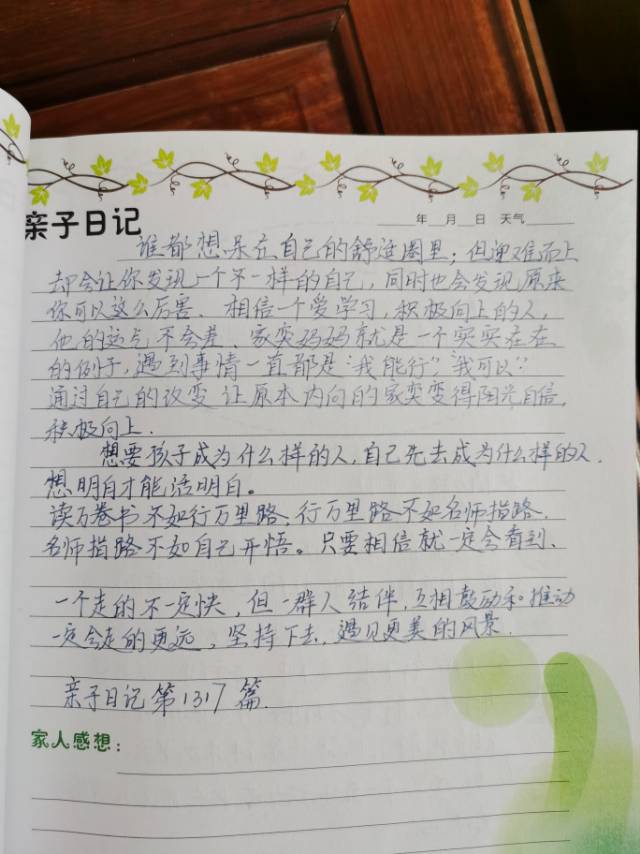 亲子日记
年 月 日 天气
谁都想呆在自己的舒适圈里；但迎难而上
却会让你发现一个不一样的自己，同时也会发现原来
你可以这么厉害．相信一个爱学习，积极向上的人，
他的运气不会差．家奕妈妈就是一个实实在在
的例子，遇到事情一直都是"我能行"，"我可以"
通过自己的改变 让原本内向的家奕变得阳光自信，
积极向上．
想要孩子成为什么样的人，自己先去成为什么样的人．
想明白才能活明白。
读万卷书不如行万里路，行万里路不如名师指路．
名师指路不如自己开悟。只要相信就一定会看到．
一个走的不一定快，但一群人结伴，互相鼓励和推动
一定会走的更远，坚持下去，遇见更美的风景．
亲子日记第1317篇．
家人感想：